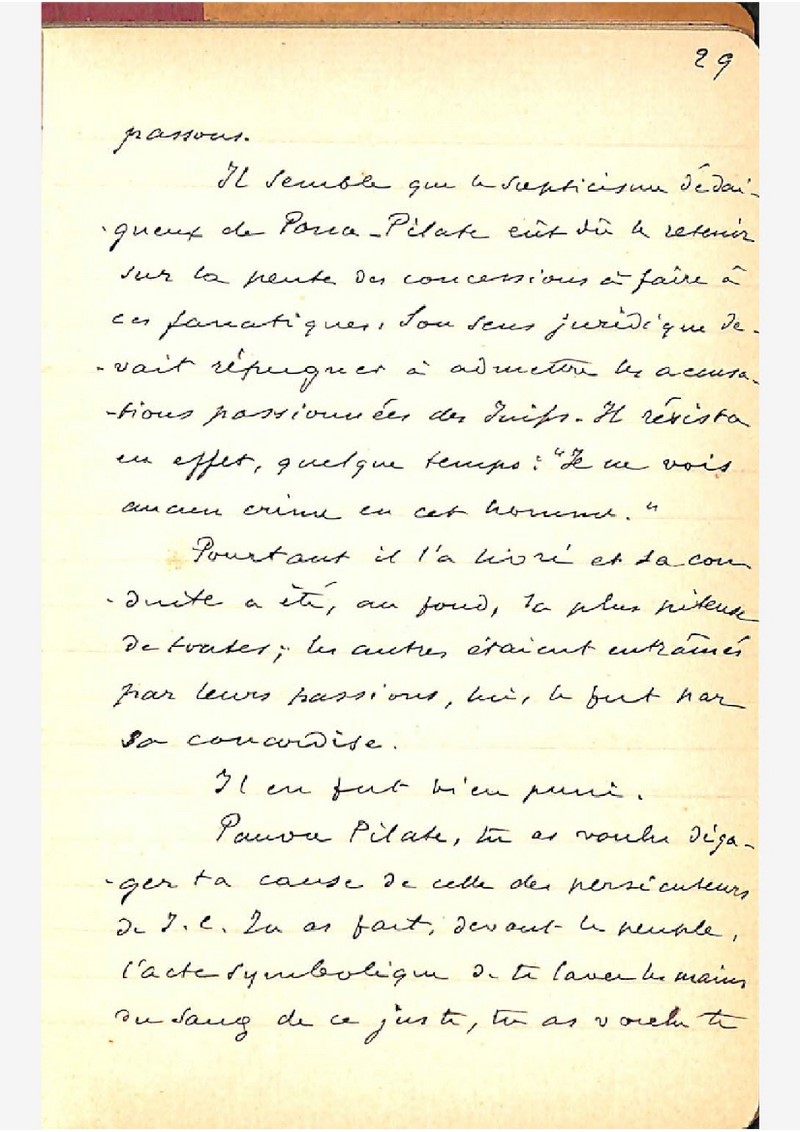 29
passons.
Il semble que le scepticisme dédai-
-gneux de Ponce-Pilate eût dû le retenir
sur la pente des concessions à faire à
ces fanatiques. Son sens juridique de-
-vait répugner à admettre les accusa-
-tions passionnées des Juifs. Il résista
en effet, quelque temps : "Je ne vois
aucun crime en cet homme."
Pourtant il l'a livré et sa con
-duite a été, au fond, la plus piteuse
de toutes ; les autres étaient entraînés
par leurs passions, lui, le fut par
sa couardise.
Il en fut bien puni.
Pauvre Pilate, tu as voulu déga-
-ger ta cause de celle des persécuteurs
de J. C. Tu as fait, devant le peuple,
l'acte symbolique de te laver les mains
du sang de ce juste, tu as voulu te